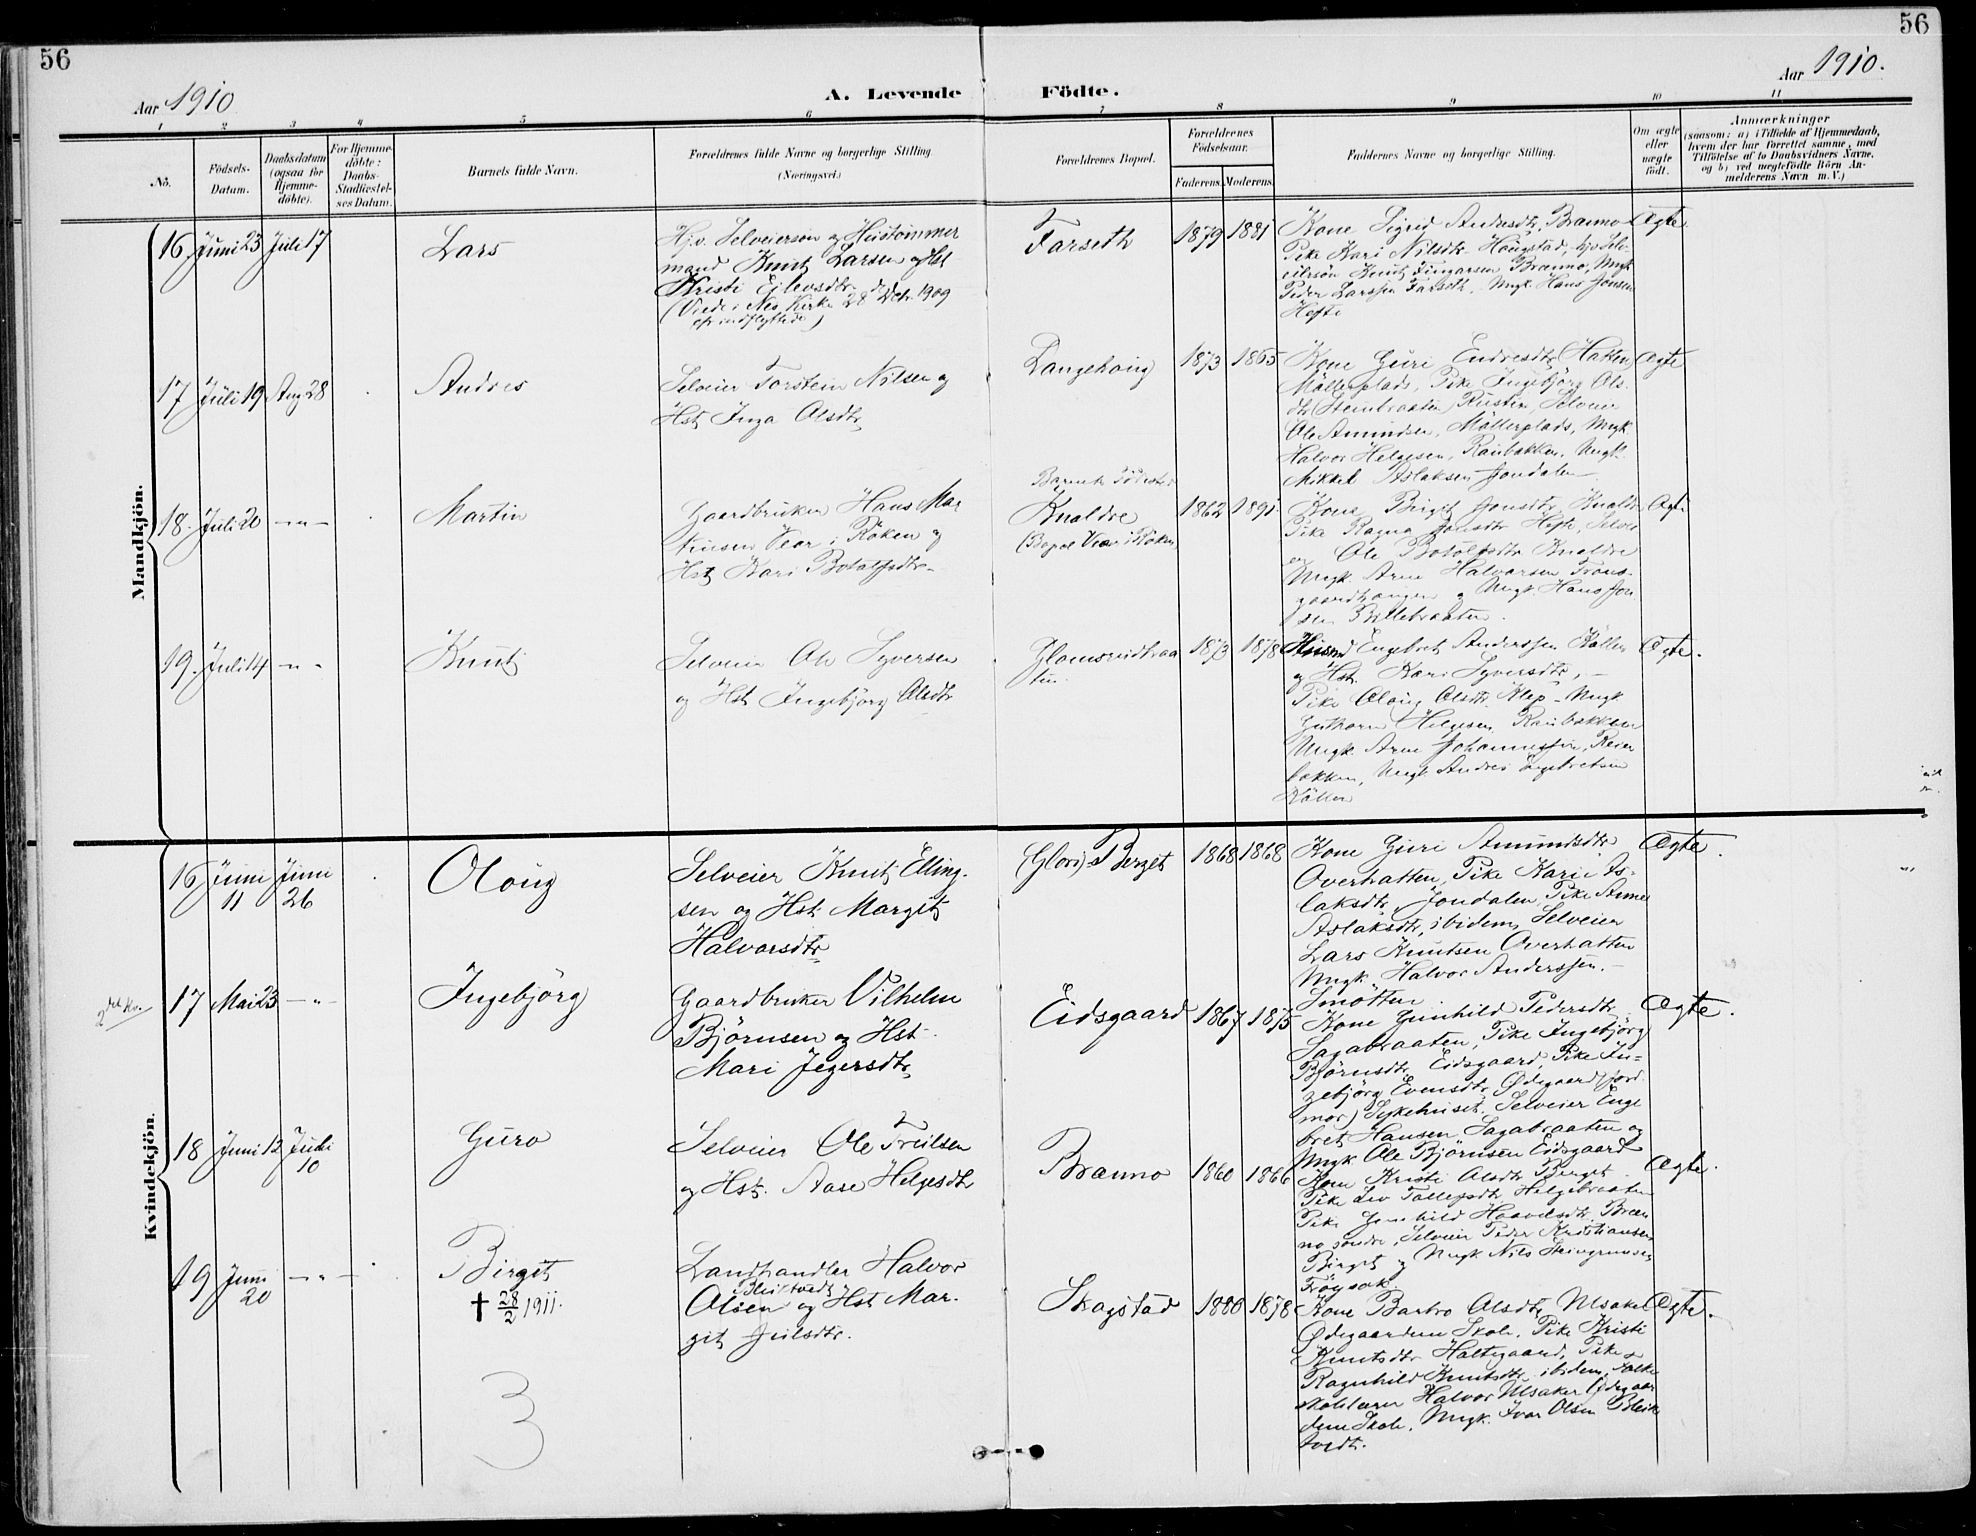 56
56
Aar 1910
A. Levende Födte.
Aar 1910.
1 2 3 4 5 6 7 8 9 10 11
No.
Födsels-
Datum.
Daabsdatum
(ogsaa for
Hjemme-
döbte).
For Hjemme-
döbte:
Daabs-
Stadfæstel-
ses Datum.
Barnets fulde Navn.
Forældrenes fulde Navne og borgerlige Stilling.
(Næringsvei.)
Forældrenes Bopæl.
Forældrenes
Födselsaar.
Faderens. Moderens.
Faddernes Navne og borgerlige Stilling.
Om ægte
eller
uægte
födt.
Anmærkninger
(saasom: a) i Tilfælde af Hjemmedaab,
hvem der har forrettet samme, med
Tilföielse af to Daabsvidners Navne,
og b) ved uægtefödte Börn An-
melderens Navn m. V.)
Mandkjön.
16 Juni 23 Juli 17
Lars
Hjv. Selveiersön og Hustömmer
mand Knut Larsen og Hst
Kristi Eilevsdtr
(Viede i Nes Kirke 28 1909
indflyttede)
Farseth
1879 1881
Kone Sigrid Andresdtr, Brænno
Pike Kari Nilsdtr Haugstad, hjv. Sel-
eiersön Knut Brænno, Ungk.
Peder Larssen Farseth, Ungk. Hans Jonsen
Hefte
Ægte.
17 Juli 19 Aug 28
Andres
Selveier Torstein Nilsen og
Hst Inga Olsdtr
Langehaug
1873 1865
Kone Guri Endresdtr
Möllerplads, Pike Ingebjörg Ols-
dtr (Stenbraaten) Rustin, Selveier
Ole Amundsen, Möllerplads, Ungk.
Halvor Helgesen, Raubakken, Ungk.
Mikkel Aslaksen Jondalen
Ægte
18. Juli 20 -"-
Martin
Gaardbruker Hans Mar
tinsen Vear i Röken og
Hst Kari Botolfsdtr
Barnets Födested
Knaldre
(Bopæl Vear i Röken
1862 1891
Kone Birgit Jonsdtr, Knaldre
Pike Ragna Jonsdtr Hefte, Selvei
er Ole Knaldre
Ungk. Arne Halvorsen
og Ungk. Hans Jon
sen Brillebraaten.
Ægte
19. Juli 4 -"-
Knut
Selveier Ole Syversen
og Hst Ingebjörg Olsdtr
ten.
1873 1878
Husmd Engebret Anderssen Kollen
og Hst. Kari Syversdtr,
Pike Olaug Olsdtr Klep, Ungk
Guthorm Helgesen Raubakken
Ungk. Arne Johannessen,
bakken, Ungk Andres Engebretsen
Kollen
Ægte.
Kvindekjön.
16 Juni 11 Juni 26
Olaug
Selveier Knut Elling-
sen og Hst. Margit
Halvorsdtr
(Glori) Berget
1868 1868
Kone Guri Amundsdtr
Overhatten, Pike Kari As-
laksdtr, Jondalen, Pike Anne
Aslaksdtr, ibidem, Selveier
Lars Knutsen Overhatten
Ungk. Halvor Anderssen.
Smötten
Ægte.
17 Mai 23 -"-
Ingebjörg
Gaardbruker Vilhelm
Björnsen og Hst.
Mari Jegersdtr
Eidsgaard
1867 1875
Kone Gunhild Pedersdtr
Sagabraaten, Pike Ingebjörg
Björnsdtr, Eidsgaard, Pike In-
gebjörg Evensdtr Ødegaard (jord
mor) Sykehuset, Selveier Enge
bret Hansen Sagabraaten og
Ungk. Ole Björnsen Eidsgaard
Ægte.
18 Juni 12 Juli 10
Guro
Selveier Ole Truilsen
og Hst. Aase Helgesdtr
Brænno
1860 1866
Kone Kristi Olsdtr Berget
Pike Liv Tollefsdtr Helgebraaten
Pike Gunhild Haavelsdtr Bræn
no söndre, Selveier Peder Kristiansen
Birget og Ungk Nils Steingrimsen
Fröysak
Ægte.
19 Juni 20 -"-
Birgit
† 28/2 1911.
Landhandler Halvor
Bleiktvedt
Olsen og Hst Mar-
git Juilsdtr.
Skagstad
1880 1878
Kone Barbro Olsdtr Ulsaker
Ødegaardene Skole, Pike Kristi
Knutsdtr Haltegaard, Pike
Ragnhild Knutsdtr ibidem, Folke
skolelærer Halvor Ulsaker Ødegaar
dene Skole, Ungk. Ivar Olsen Bleik
tvedt.
Ægte.
3